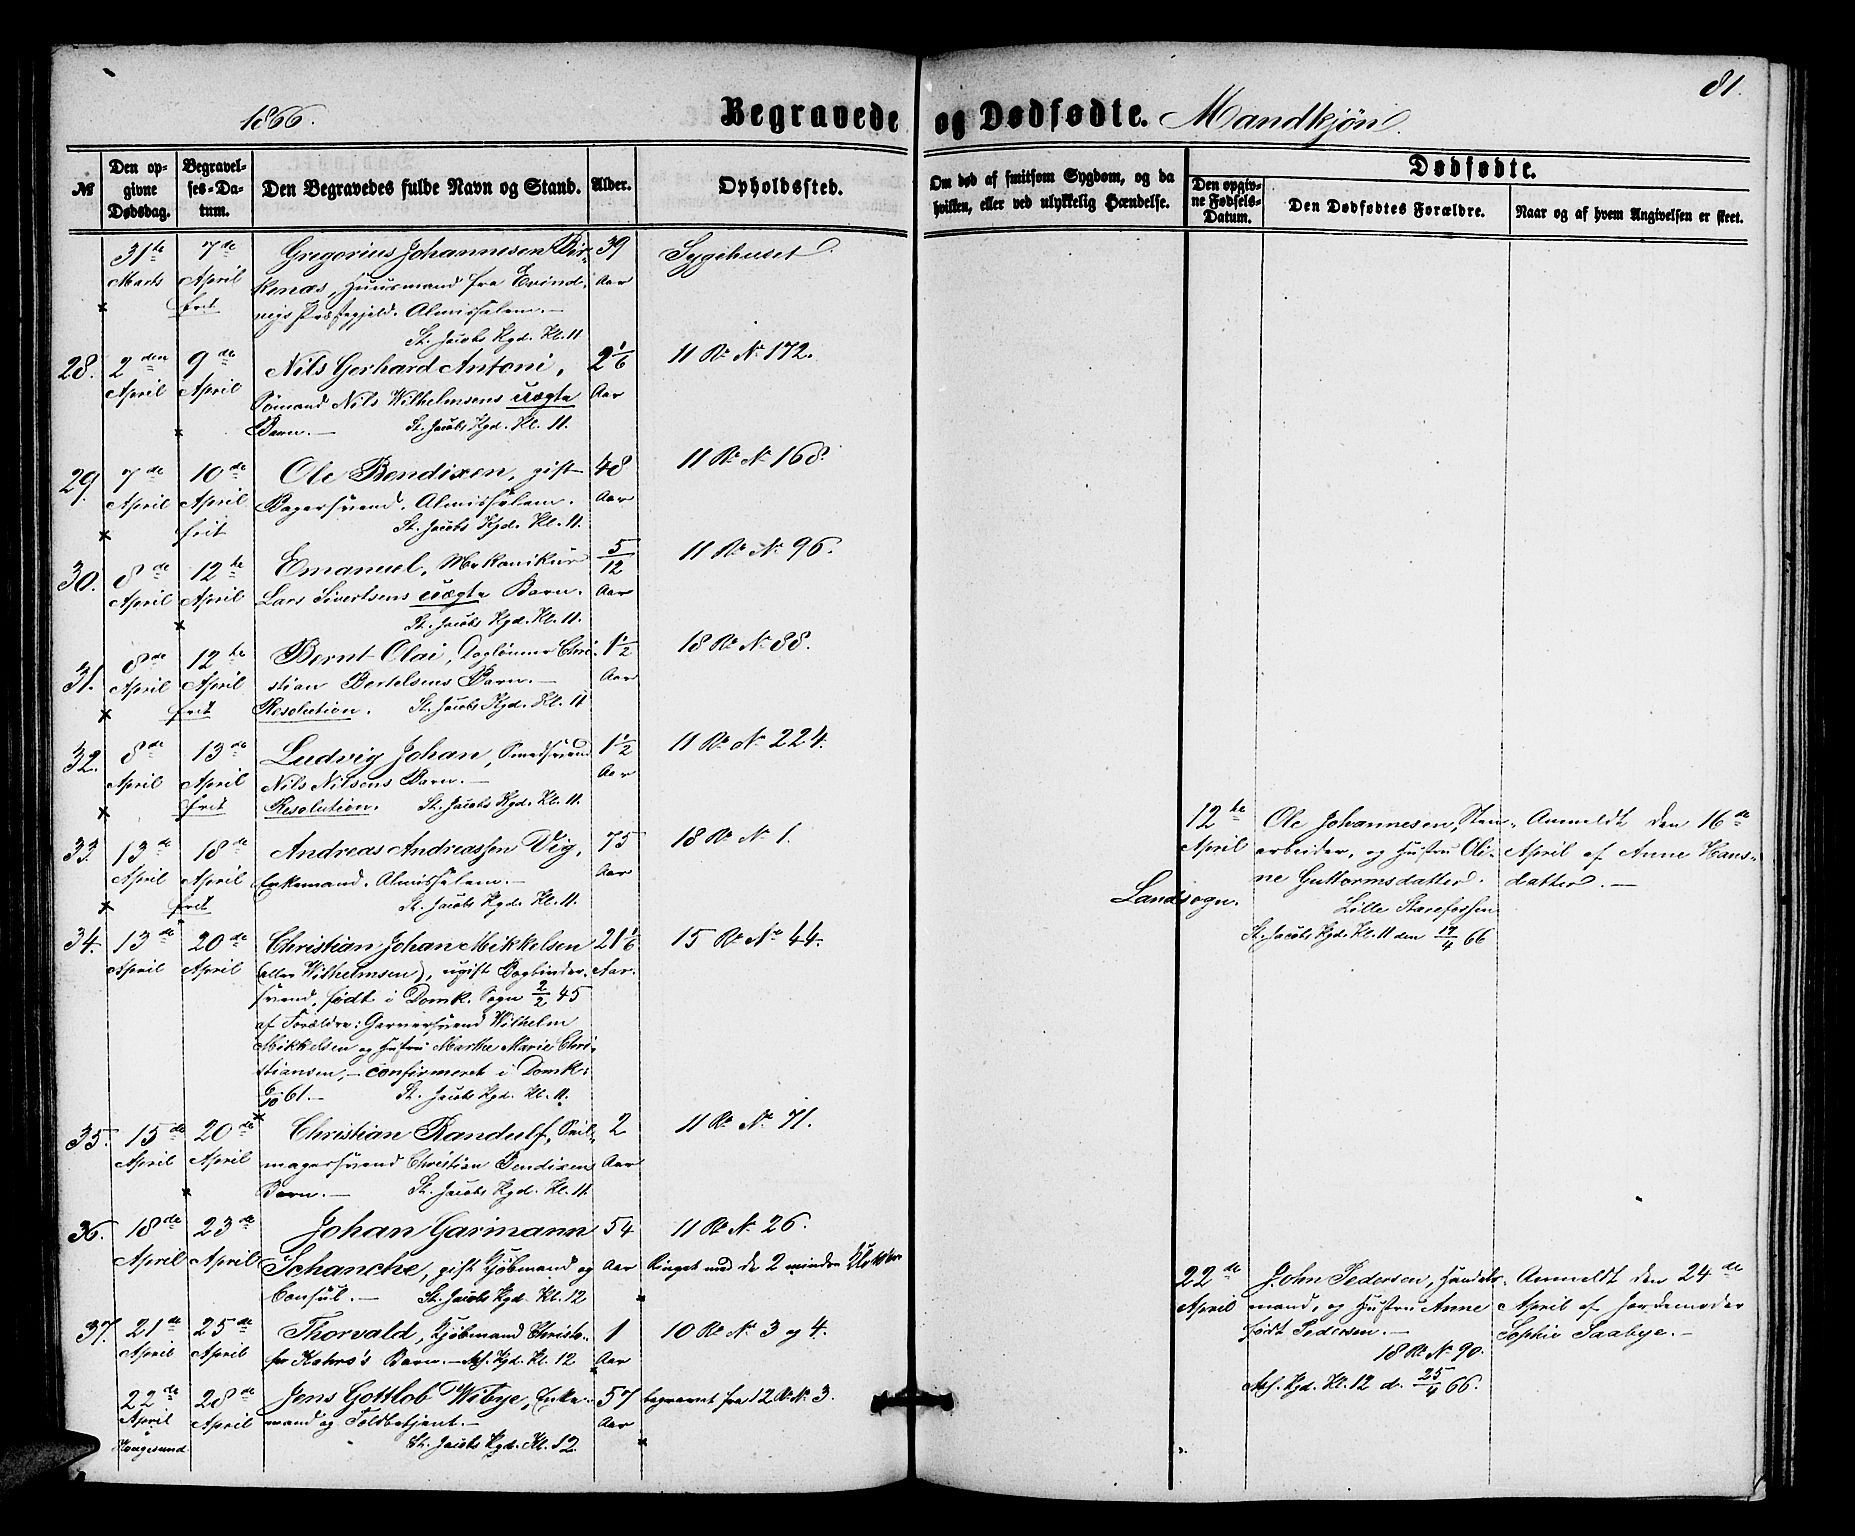 1866.
Begravede og Dødfødte. Mandkjøn.
81.
№
Den opgivne Dødsdag.
Begravelses-Datum.
Den Begravedes fulde Navn og Stand.
Alder.
Opholdssted.
Om død af smitsom Sygdom, og da
hvilken, eller ved ulykkelig Hændelse.
Dødfødte.
Den opgivne Fødsels-Datum.
Den Dødfødtes Forældre.
Naar og af hvem Angivelsen er skeet.
31te 7de Gregorius Johannesen Bir- 39 Sygehuset.
Marts April kenæs, Huusmand fra Evind- Aar
frit vigs Præstegjeld. Almisselem.
St. Jacobs Kgd. Kl. 11
28. 2den 9de Nils Gerhard Antoni, 2 1/6 11 R. N. 172.
April April Sømand Nils Wilhelmsens uægte Aar
Barn. — St. Jacobs Kgd. Kl. 11.
29. 7de 10de Ole Bendixen, gift 48 11 R. N. 168.
April April Bagersvend. Almisselem. Aar
frit St. Jacobs Kgd. Kl. 11.
30. 8de 12te Emanuel, Mekanikus 5/12 11 R. N. 96.
April April Lars Sivertsens uægte Barn. Aar
St. Jacobs Kgd. Kl. 11.
31. 8de 12te Bernt Olai, Daglønner Chri- 1 1/2 18 R. N. 88.
April April stian Bertelsens Barn. — Aar
frit Resolution. St. Jacobs Kgd. Kl. 11
32. 8de 13de Ludvig Johan, Smedsvend 1 1/2 11 R. N. 224.
April April Nils Nilsens Barn. — Aar
frit Resolution. St. Jacobs Kgd. Kl. 11.
33. 13de 18de Andreas Andreassen Vig, 75 18 R. N. 1.
April April Enkemand. Almisselem. — Aar
frit St. Jacobs Kgd. Kl. 11.
34. 13de 20de Christian Johan Mikkelsen 21 1/6 15 R. No 44.
April April (eller Wilhelmsen), ugift Bogbinder- Aar.
svend, født i Domk. Sogn 2/2 45
af Forældre: Garversvend Wilhelm
Mikkelsen og Hustru Marthe Marie Chri-
stiansen, — confirmeret i Domk.
6/10 61. — St. Jacobs Kgd. Kl. 11.
35. 15de 20de Christian Randulf, Seil- 2 11 R. No 71.
April April magersvend Christian Bendixens Aar
Barn. — St. Jacobs Kgd. Kl. 11.
36. 18de 23de Johan Garmann 54 11 R. N. 26.
April April Schanche, gift Kjøbmand og Aar Ringet med de 2 mindre Klokker
Consul. — St. Jacobs Kgd. Kl. 12
37. 21de 25de Thorvald, Kjøbmand Christo- 1 10 R. N. 3 og 4.
April April fer Kahrs's Barn. — Kgd. Kl. 12 Aar
22de 28de Jens Gottlob Wibye, Enke- 57 begravet fra 12 R. N. 3.
April April mand og Toldbetjent. — Aar
Haugesund St. Jacobs Kgd. Kl. 12
12te Ole Johannesen, Sten- Anmeldt den 16de
April arbeider, og Hustru Oli- April af Anne Hans-
Landsogn. ne Guttormsdatter. datter. —
Lille Starefossen
St. Jacobs Kgd. Kl. 11 den 17/4 66
22de John Pedersen, Handels- Anmeldt den 24de
April mand, og Hustru Anne April af Jordemoder
født Pedersen. — Sophie Saabye. —
18 R. N. 90.
Kgd. Kl. 12 d. 25/4 66.